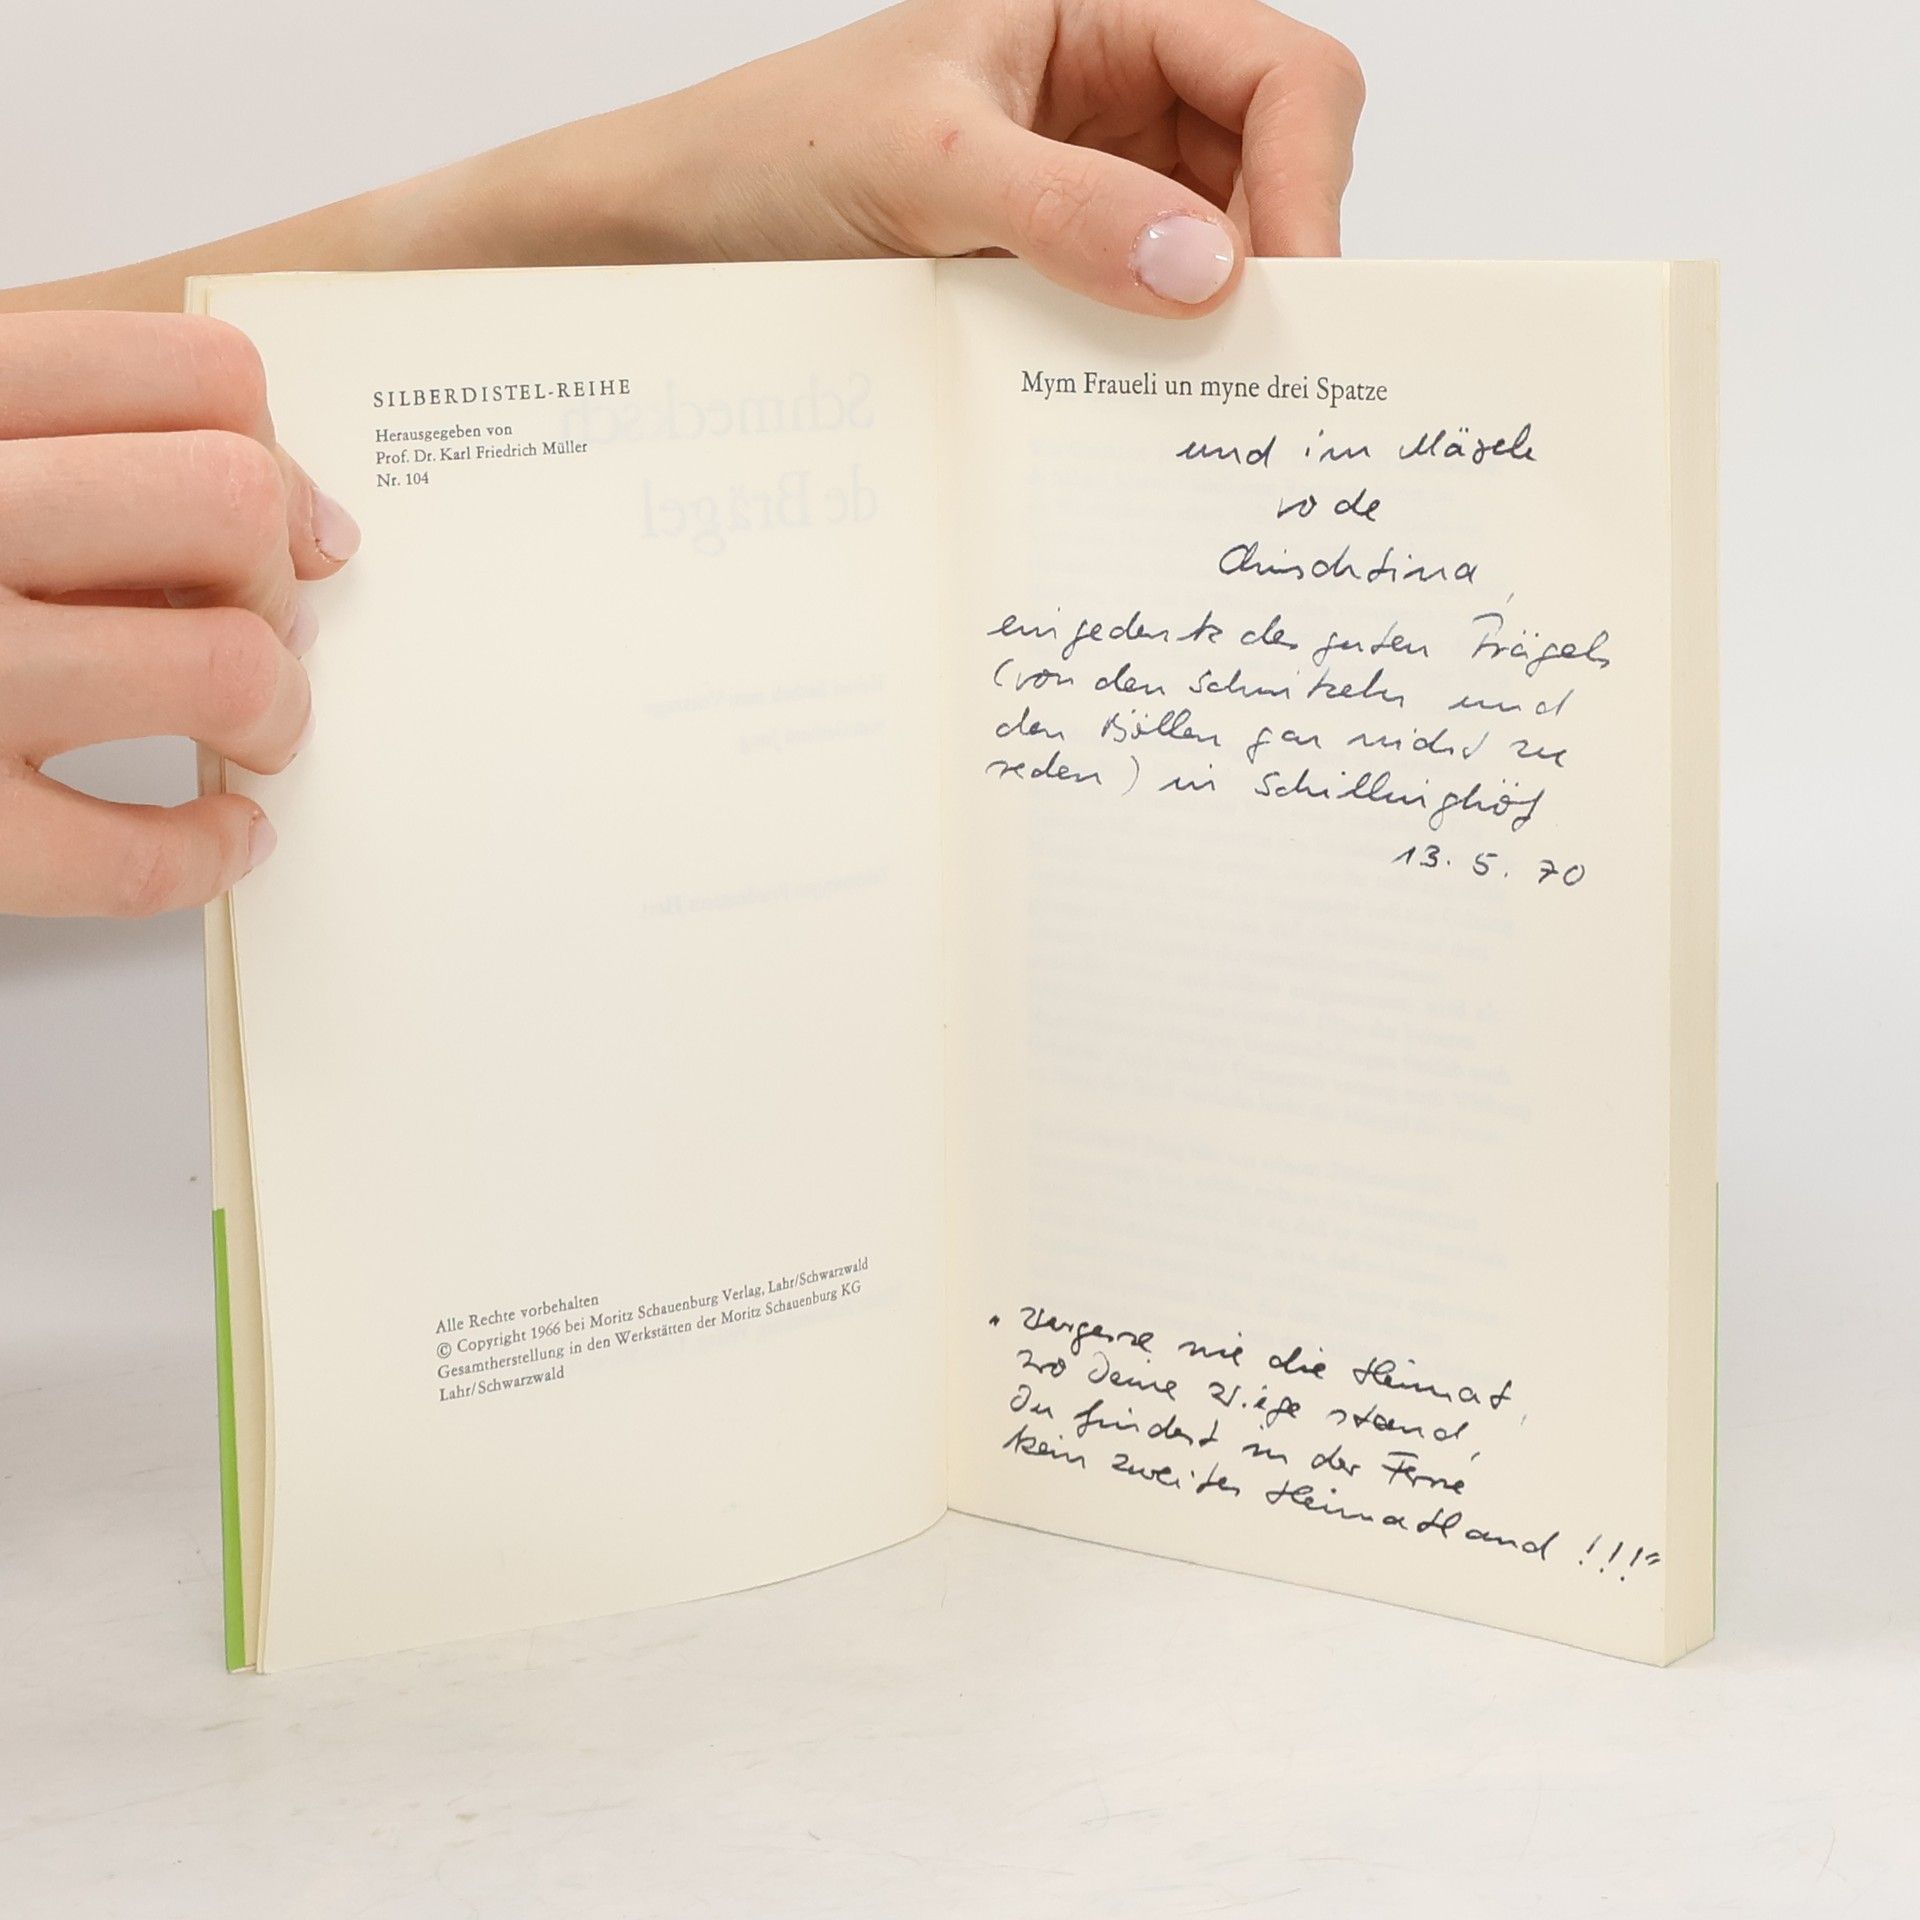 SILBERDISTEL-REIHE
Herausgegeben von
Prof. Dr. Karl Friedrich Müller
Nr. 104
Alle Rechte vorbehalten
© Copyright 1966 bei Moritz Schauenburg Verlag, Lahr/Schwarzwald
Gesamtherstellung in den Werkstätten der Moritz Schauenburg KG
Lahr/Schwarzwald
Mym Fraueli un myne drei Spatze
und im
vo de
Chrischtina,
eingedenk des guten Brägels
(von den Schnitzeln und
den Böllen gar nicht zu
reden) in Schillinghöf
13. 5. 70
„Vergesse nie die Heimat,
wo Deine Wiege stand,
Du findest in der Ferne
kein zweites Heimatland!!!“
Schmecksch
de Brägel